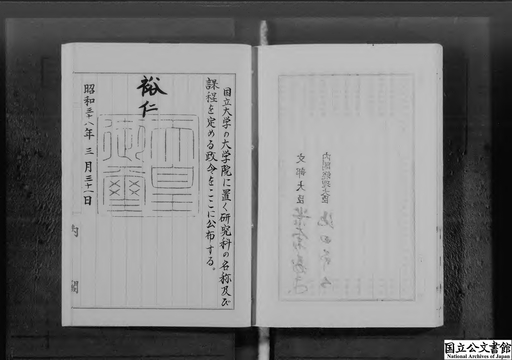 国立大学の大学院に置く研究科の名称及び
課程を定める政令をここに公布する。
裕仁
天皇
御璽
昭和三十八年三月三十一日
内閣
内閣総理大臣
文部大臣
国立公文書館
National Archives of Japan